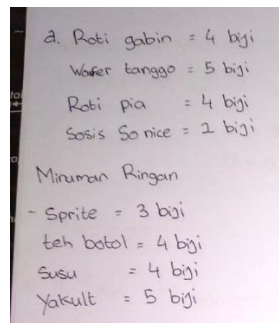 a. Roti gabin = 4 biji
Wafer tanggo = 5 biji
Roti pia = 4 biji
Sosis So nice = 1 biji
Minuman Ringan
- Sprite = 3 biji
teh botol = 4 biji
Susu = 4 biji
Yakult = 5 biji